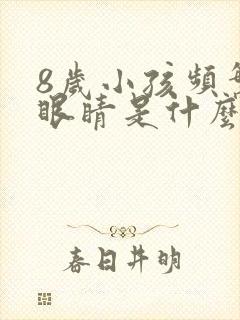 8歲小孩頻繁
眼睛是什麼
春日井明